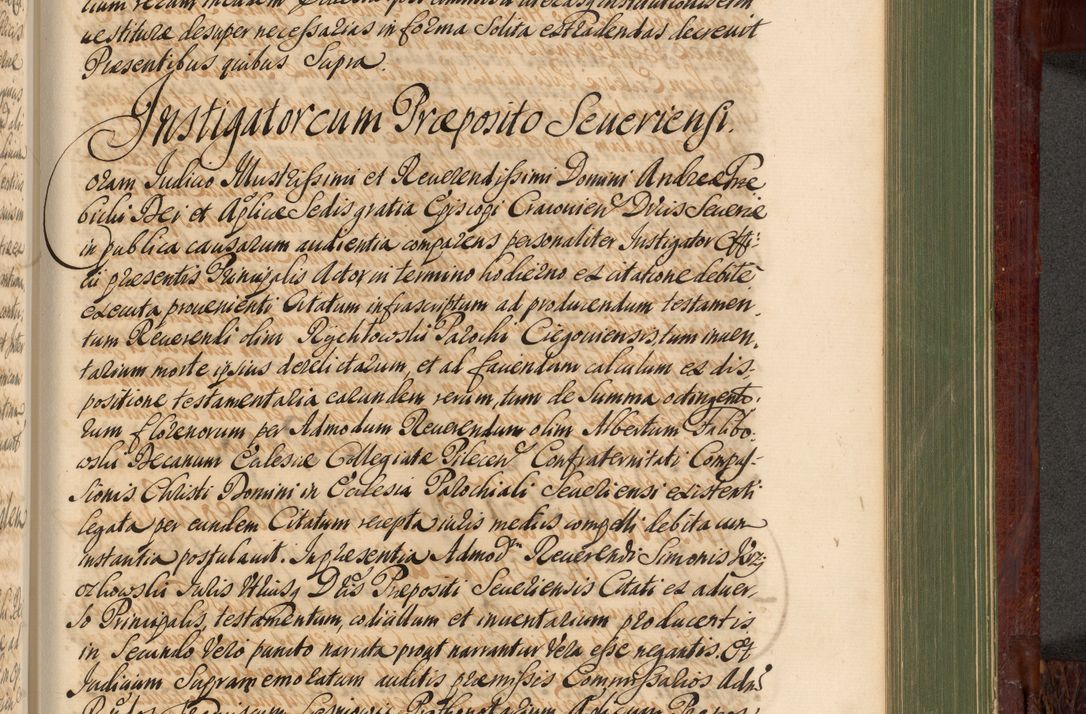 uestituræ desuper necessarias in forma Solita extradendas decreuit
Præsentibus quibus Supra.
Instigator cum Præposito Seueriensi.
Coram Iudicio Illustrissimi et Reuerendissimi Domini Andreæ Trze
bicki Dei et Aplicæ Sedis gratia Episcopi Cracouien Ducis Seueriæ
in publica causarum audientia comparens personaliter Instigator Offi:
cii præsentis Principalis Actor in termino hodierno ex citatione debite
executa prouenienti Citatum infrascriptum ad producendum testamen
tum Reuerendi olim Rychłowski Parochi Ciegouiensis, tum inuen
tarium morte ipsius derelictarum, et ad faciendum calculum ex dis
positione testamentaria earundem rerum, tum de Summa octingento
rum florenorum per Admodum Reuerendum olim Albertum Falibo
wski Decanum Ecclesiæ Collegiatæ Pilecen Confraternitati Compas
sionis Christi Domini in Ecclesia Parochiali Seueriensi existenti
legata per eundem Citatum recepta iuris mediis compelli debita cum
instantia postulauit. In præsentia Admod Reuerendi Simonis
Iuris Vtriusq Dris Præpositi Seueriensis Citati ex aduer
so Principalis, testamentum, codicillum et inuentarium producentis
in Secundo Vero puncto narrata prout narrantur Vera esse negantis. Et
Iudicium Supramemoratum auditis præmissis Commissarios Adm